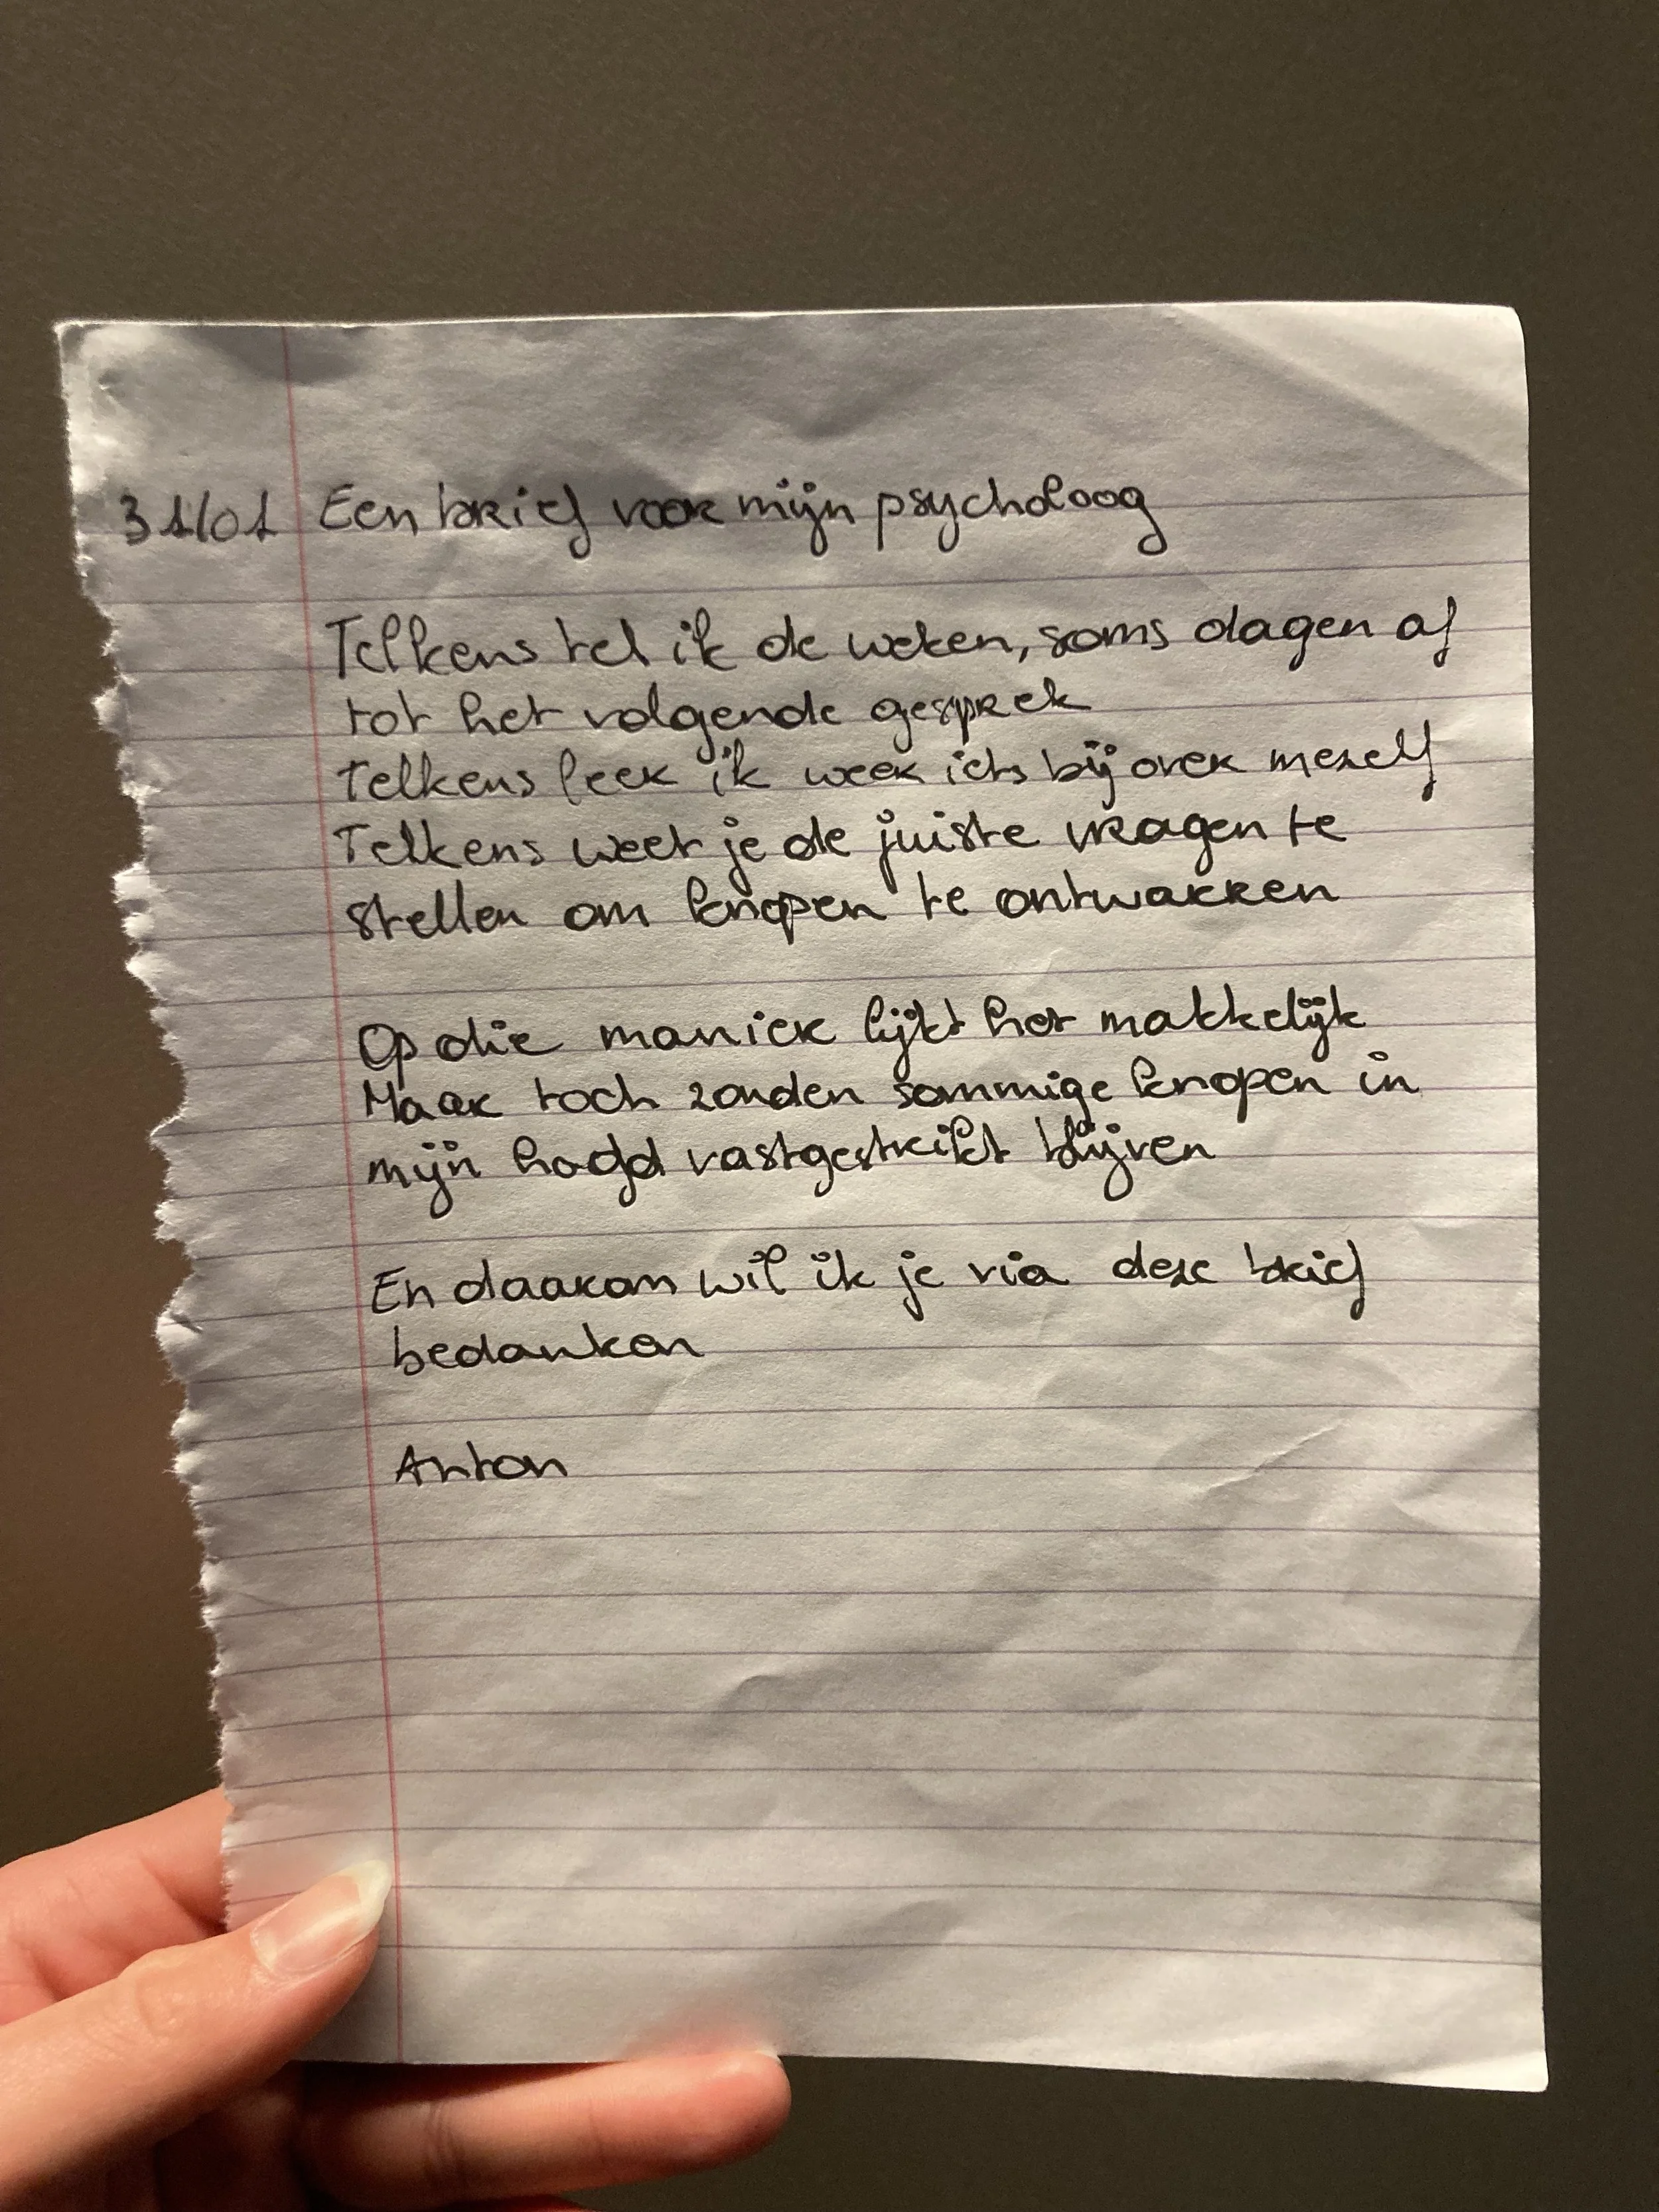 31/01 Een brief voor mijn psycholoog
Telkens tel ik de weken, soms dagen af
tot het volgende gesprek
Telkens leer ik weer iets bij over mezelf
Telkens weet je de juiste vragen te
stellen om knopen te ontwarren
Op die manier lijkt het makkelijk
Maar toch zouden sommige knopen in
mijn hoofd vastgestrikt blijven
En daarom wil ik je via deze brief
bedanken
Anton